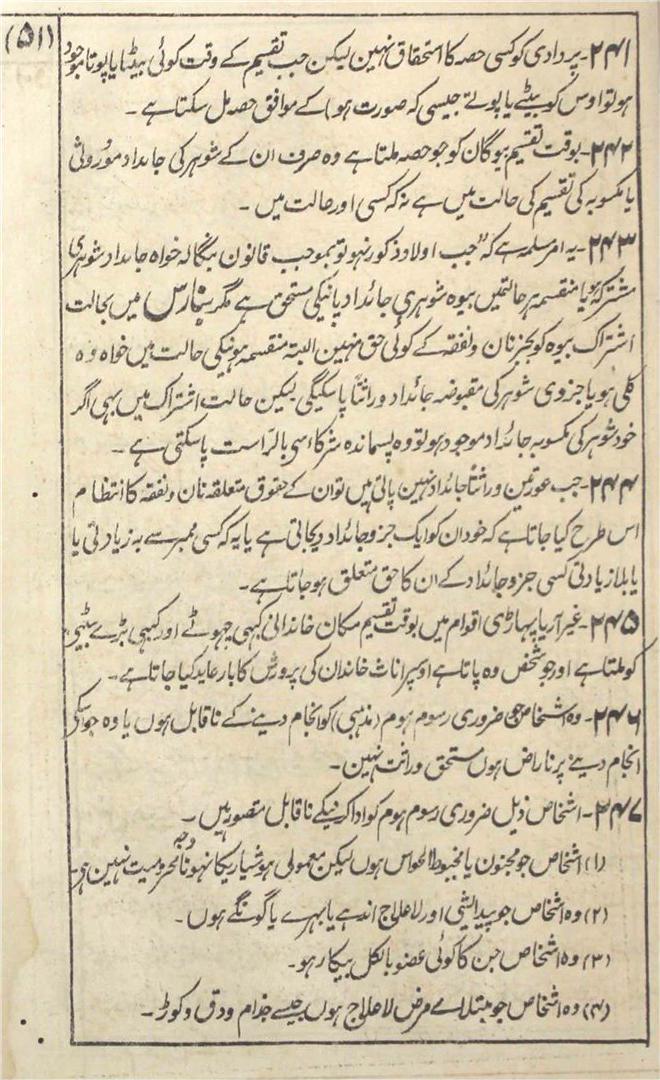 (۵۱)
۲۴۱- پردادی کو کسی حصہ کا استحقاق نہین لیکن جب تقسیم کے وقت کوئی بیٹا یا پوتا موجود
ہو تو اوس کو بیٹے یا پوتے جیسی کہ صورت ہو) کے موافق حصہ مل سکتا ہے ۔
۲۴۲- بوقت تقسیم بیوگان کو جو حصہ ملتا ہے وہ صرف ان کے شوہر کی جائداد موروثی
یا مکسوبہ کی تقسیم کی حالت میں ہے نہ کہ کسی اور حالت میں ۔
۲۴۳- یہ امر مسلمہ ہے کہ جب اولاد ذکور نہو تو بموجب قانون بنگالہ خواہ جائداد شوہری
مشترکہ ہو یا منقسمہ ہر حالتمیں بیوہ شوہری جائداد پانیکی مستحق ہے مگر بنارس میں بحالت
اشتراک بیوہ کو بجز نان و نفقہ کے کوئی حق نہین البتہ منقسمہ ہونیکی حالت میں خواہ وہ
کلی ہو یا جزوی شوہر کی مقبوضہ جائداد وراثتاً پاسکیگی لیکن حالت اشتراک میں بھی اگر
خود شوہر کی مکسوبہ جائداد موجود ہو تو وہ پسماندہ شرکا سے بالراست پاسکتی ہے ۔
۲۴۴- جب عورتین وراثتاً جائداد نہین پاتی ہیں تو ان کے حقوق متعلقہ نان و نفقہ کا انتظام
اس طرح کیا جاتا ہے کہ خود ان کو ایک جزو جائداد دیجاتی ہے یا یہ کہ کسی ممبر سے بہ زیادتی یا
یا بلا زیادتی کسی جزو جائداد کے ان کا حق متعلق ہوجاتا ہے ۔
۲۴۵- غیر آریا پہاڑی اقوام میں بوقت تقسیم مکان خاندانی کبہی چہوٹے اور کبہی بڑے بیٹے
کو ملتا ہے اور جو شخص وہ پاتا ہے اوسپر اناث خاندان کی پرورش کا بار عاید کیا جاتا ہے ۔
۲۴۶- وہ اشخاص جو ضروری رسوم ہوم (مذہبی) کو انجام دینے کے ناقابل ہوں یا وہ جو انکی
انجام دینے پر ناراض ہوں مستحق وراثت نہین ۔
۲۴۷- اشخاص ذیل ضروری رسوم ہوم کو ادا کرنیکے ناقابل متصور ہیں ۔
(۱) اشخاص جو مجنون یا مخبوط الحواس ہوں لیکن معمولی ہوشیاریکا نہونا وجہ محرومیت نہین ہے ۔
(۲) وہ اشخاص جو پیدایشی اور لاعلاج اندہے یا بہرے یا گونگے ہوں ۔
(۳) وہ اشخاص جن کا کوئی عضو بالکل بیکار ہو ۔
(۴) وہ اشخاص جو مبتلاے مرض لاعلاج ہوں جیسے جذام و دق و کوڑ ۔